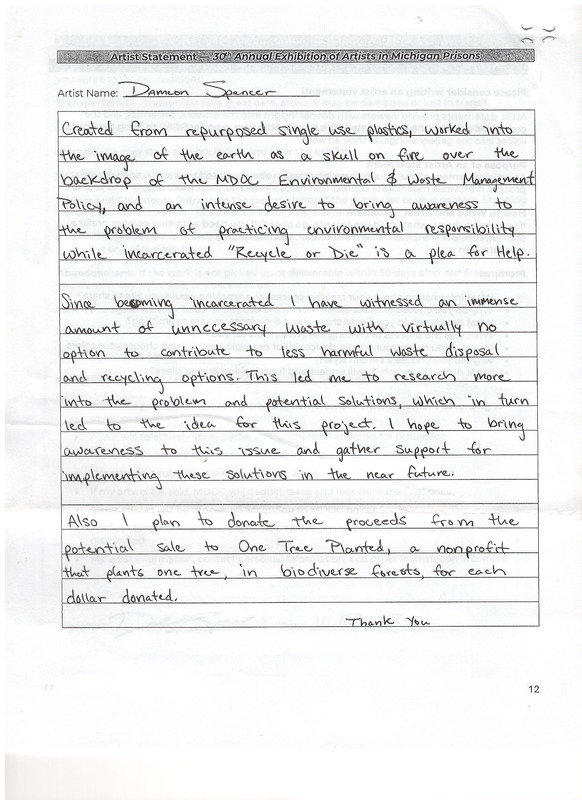 Artist Statement — 30th Annual Exhibition of Artists in Michigan Prisons
Artist Name: Dameon Spencer
Created from repurposed single use plastics, worked into
the image of the earth as a skull on fire over the
backdrop of the MDOC Environmental & Waste Management
Policy, and an intense desire to bring awareness to
the problem of practicing environmental responsibility
while incarcerated "Recycle or Die" is a plea for Help.
Since becoming incarcerated I have witnessed an immense
amount of unneccesary waste with virtually no
option to contribute to less harmful waste disposal
and recycling options. This led me to research more
into the problem and potential solutions, which in turn
led to the idea for this project. I hope to bring
awareness to this issue and gather support for
implementing these solutions in the near future.
Also I plan to donate the proceeds from the
potential sale to One Tree Planted, a nonprofit
that plants one tree, in biodiverse forests, for each
dollar donated.
Thank You
12